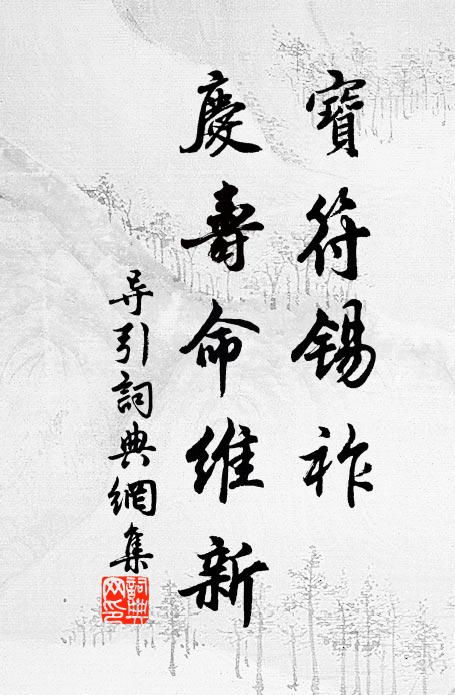 寶符錫祚
慶壽命維新
导引詞典網集